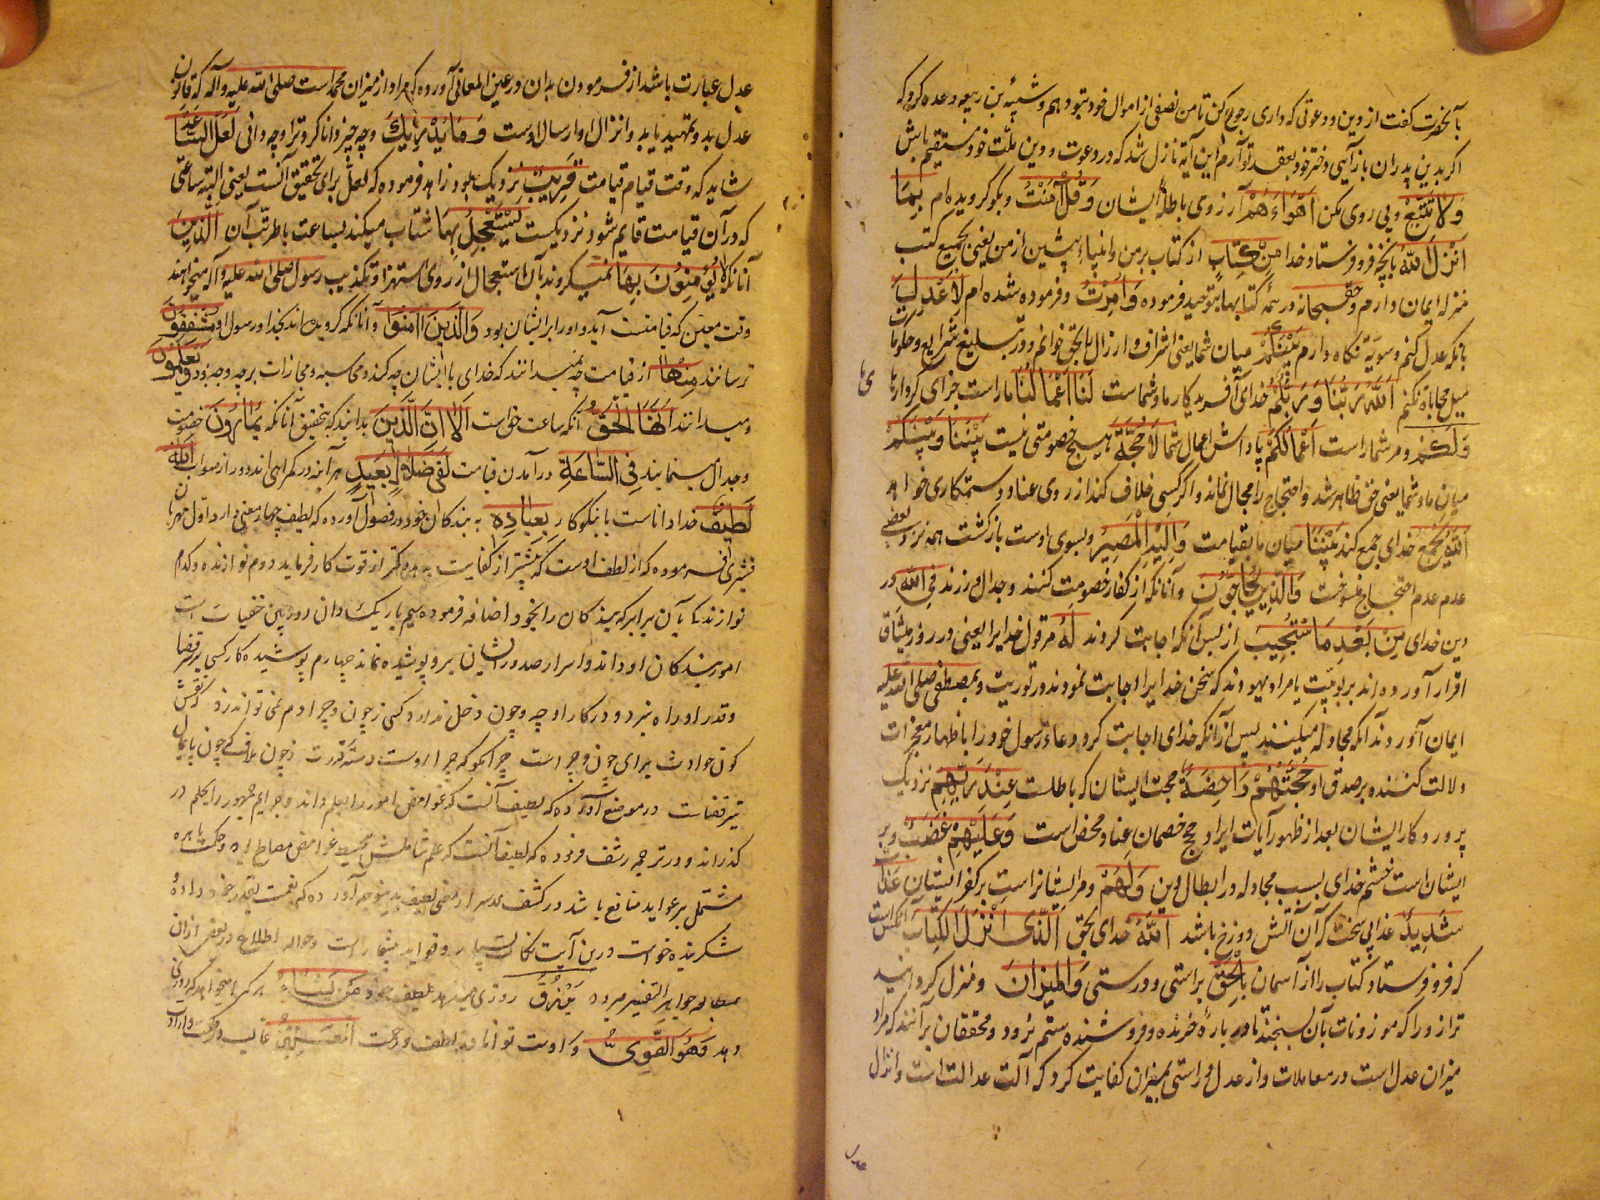 بآنحضرت گفت از دین و دعوتی که داری رجوع کن تا من نصفی از اموال خود بتو دهم و شیبة بن ربیعه وعده کرد که
اگر بدین پدران باز آیی دختر خود بعقد تو آرم این آیه نازل شد که در دعوت و دین ملت خود مستقیم باش
وَلا تَتَّبِعْ و پی روی مکن اَهْوَاءَهُمْ آرزوی باطلهٔ ایشان وَقُلْ آمَنْتُ و بگو گرویده ام بِمَا
اَنْزَلَ اللّٰهُ بآنچه فرو فرستاد خدا مِنْ كِتَابٍ از کتاب بر من و انبیاء پیشین از من یعنی بجمیع کتب
منزله ایمان دارم و حق سبحانه در همه کتابها بتوحید فرموده وَاُمِرْتُ و فرموده شده ام لِاَعْدِلَ
بآنکه عدل کنم و سویّه نگاه دارم بَيْنَكُمْ میان شما یعنی اشراف و ارزال را بحق خوانم و در تبلیغ شرایع و حکومات
میل و محابا نکنم اَللّٰهُ رَبُّنَا وَرَبُّكُمْ خدای آفریدگار ما و شماست لَنَا اَعْمَالُنَا ما راست جزای کردار ما
وَلَكُمْ و مر شما راست اَعْمَالُكُمْ پاداش اعمال شما لَا حُجَّةَ هیچ خصومتی نیست بَيْنَنَا وَبَيْنَكُمْ
میان ما و شما یعنی حق ظاهر شد و احتجاج را مجال نماند و اگر کسی خلاف کند از روی عناد و ستمکاری خواهد
اَللّٰهُ يَجْمَعُ خدای جمع کند بَيْنَنَا میان ما بقیامت وَاِلَيْهِ الْمَصِيرُ و بسوی اوست بازگشت همه نزد بعضی
عدم احتجاج منسوخست وَالَّذِينَ يُحَاجُّونَ و آنانکه از کفار خصومت کنند و جدال ورزند فِي اللّٰهِ در
دین خدای مِنْ بَعْدِ مَا اسْتُجِيبَ از پس آنکه اجابت کردند لَهُ مر قول خدایرا یعنی در روز میثاق
اقرار آورده اند بربوبیّت یا مراد یهودند که سخن خدایرا اجابت نمودند در توریت و بمصطفی صلی الله علیه
ایمان آوردند آنکه مجادله میکنند پس از آنکه خدای اجابت کرد دعاء رسول خود را باظهار معجزات
دلالت کننده بر صدق او حُجَّتُهُمْ دَاحِضَةٌ حجت ایشان که باطلست عِنْدَ رَبِّهِمْ نزدیک
پروردگار ایشان بعد از ظهور آیات ایراد حجج خصمان عناد محض است وَعَلَيْهِمْ غَضَبٌ و بر
ایشان است خشم خدای بسبب مجادله در ابطال دین وَلَهُمْ و مر ایشانراست بر کفر ایشان عَذَابٌ
شَدِيدٌ عذابی سخت که آن آتش دوزخ باشد اَللّٰهُ خدای بحق الَّذِي اَنْزَلَ الْكِتَابَ آنکس است
که فرو فرستاد کتاب را از آسمان بِالْحَقِّ براستی و درستی وَالْمِيزَانَ و منزل گردانید
ترازو را که موزونات بآن بسنجند تا در بارهٔ خرنده و فروشنده ستم نرود و محققان برآنند که مراد
میزان عدل است در معاملات و از عدل و راستی بمیزان کفایت کرد که آلت عدالت است و انزال
عدل
عدل عبارت باشد از فرمودن بدان و در عین المعانی آورده که مراد از میزان محمد است صلی الله علیه و آله که قانون
عدل بدو تمهید یابد و انزال او ارسال اوست وَمَا يُدْرِيكَ و چه چیز دانا کرد ترا و چه دانی لَعَلَّ السَّاعَةَ
شاید که وقت قیام قیامت قَرِيبٌ نزدیک بود زاهد فرموده که لعل برای تحقیق آنست یعنی البته ساعتی
که در آن قیامت قایم شود نزدیکست يَسْتَعْجِلُ بِهَا شتاب میکنند بساعت الَّذِينَ
آنانکه لَا يُؤْمِنُونَ بِهَا نمیگروند بآن استعجال از روی استهزا و تکذیب رسول صلی الله علیه و آله میخواهند
وقت معیّن که قیامت آید و او را بر ایشان بود وَالَّذِينَ آمَنُوا و آنانکه گرویده اند بخدا و رسول او مُشْفِقُونَ
ترسانند مِنْهَا از قیامت چه میدانند که خدای با ایشان چه کند و محاسبه و مجازات بر چه وجه بود وَيَعْلَمُونَ
و میدانند اَنَّهَا الْحَقُّ آنکه ساعت حق است اَلَا اِنَّ الَّذِينَ بدانید که بتحقیق آنانکه يُمَارُونَ خصومت
و جدال مینمایند فِي السَّاعَةِ در آمدن قیامت لَفِي ضَلَالٍ بَعِيدٍ هر آینه در گمراهی اند دور از صواب اَللّٰهُ
لَطِيفٌ خدا داناست یا نیکوکار بِعِبَادِهِ به بندگان خود در فصول آورده که لطیف چهار معنی دارد اول مهربان
قشیری فرموده که از لطف اوست که بیشتر از کفایت بدهد و کمتر از قوت کار فرماید دوم نوازنده و کدام
نوازندگی بآن برابر که بندگان را بخود اضافه فرموده سیم باریک دان دوربین خفیات است
امور بندگان او داند و اسرار صدور ایشان برو پوشیده نماند چهارم پوشیده کار کسی بر قضا
و قدر او راه نبرد و در کار او چه و چون دخل ندارد کسی ز چون و چرا دم نمی تواند زد
تیر قضاست در موضع آورده که لطیف آنست که غوامض امور را بعلم داند و جرایم جمهور را بحلم در
گذراند و در ترجمه رشف فرموده که لطیف آنست که علم شاملش محیط غوامض مصالح بود و حکمت باهره
مشتمل بر عواید منافع باشد در کشف الاسرار معنی لطیف بدینوجه آورده که نعمت بقدر خود داده
شکر بنده خواست درین آیت نکات بسیار و فواید بیشمار است و حواله اطلاع در بعض از آن
بمطالعه جواهر التفسیر میرود يَرْزُقُ روزی میدهد بلطف خود مَنْ يَشَاءُ هر کرا میخواهد
وَهُوَ الْقَوِيُّ و اوست توانا در لطف و رحمت الْعَزِيزُ غالب